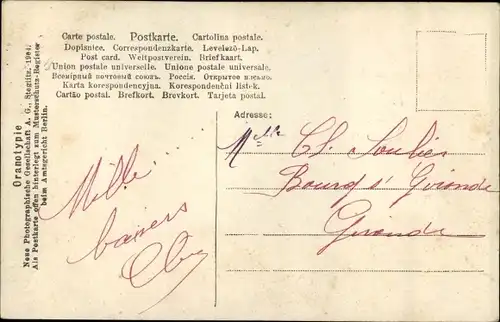 Carte postale. Postkarte. Cartolina postale.
Dopisnice. Correspondenzkarte. Levelező-Lap.
Post card. Weltpostverein. Briefkaart.
Union postale universelle. Unione postale universale.
Всемірный почтовый союзъ. Россіs. Открытое письмо.
Karta korespondencyjna. Korespondenční lístek.
Cartão postal. Brefkort. Brevkort. Tarjeta postal.
Oranotypie
Neue Photographische Gesellschaft A. G., Steglitz. 1904.
Als Postkarte offen hinterlegt zum Musterschutz-Register
beim Amtsgericht Berlin.
Mille
baisers
Adresse:
Melle Cl. Soulier
Bourg s/ Gironde
Gironde